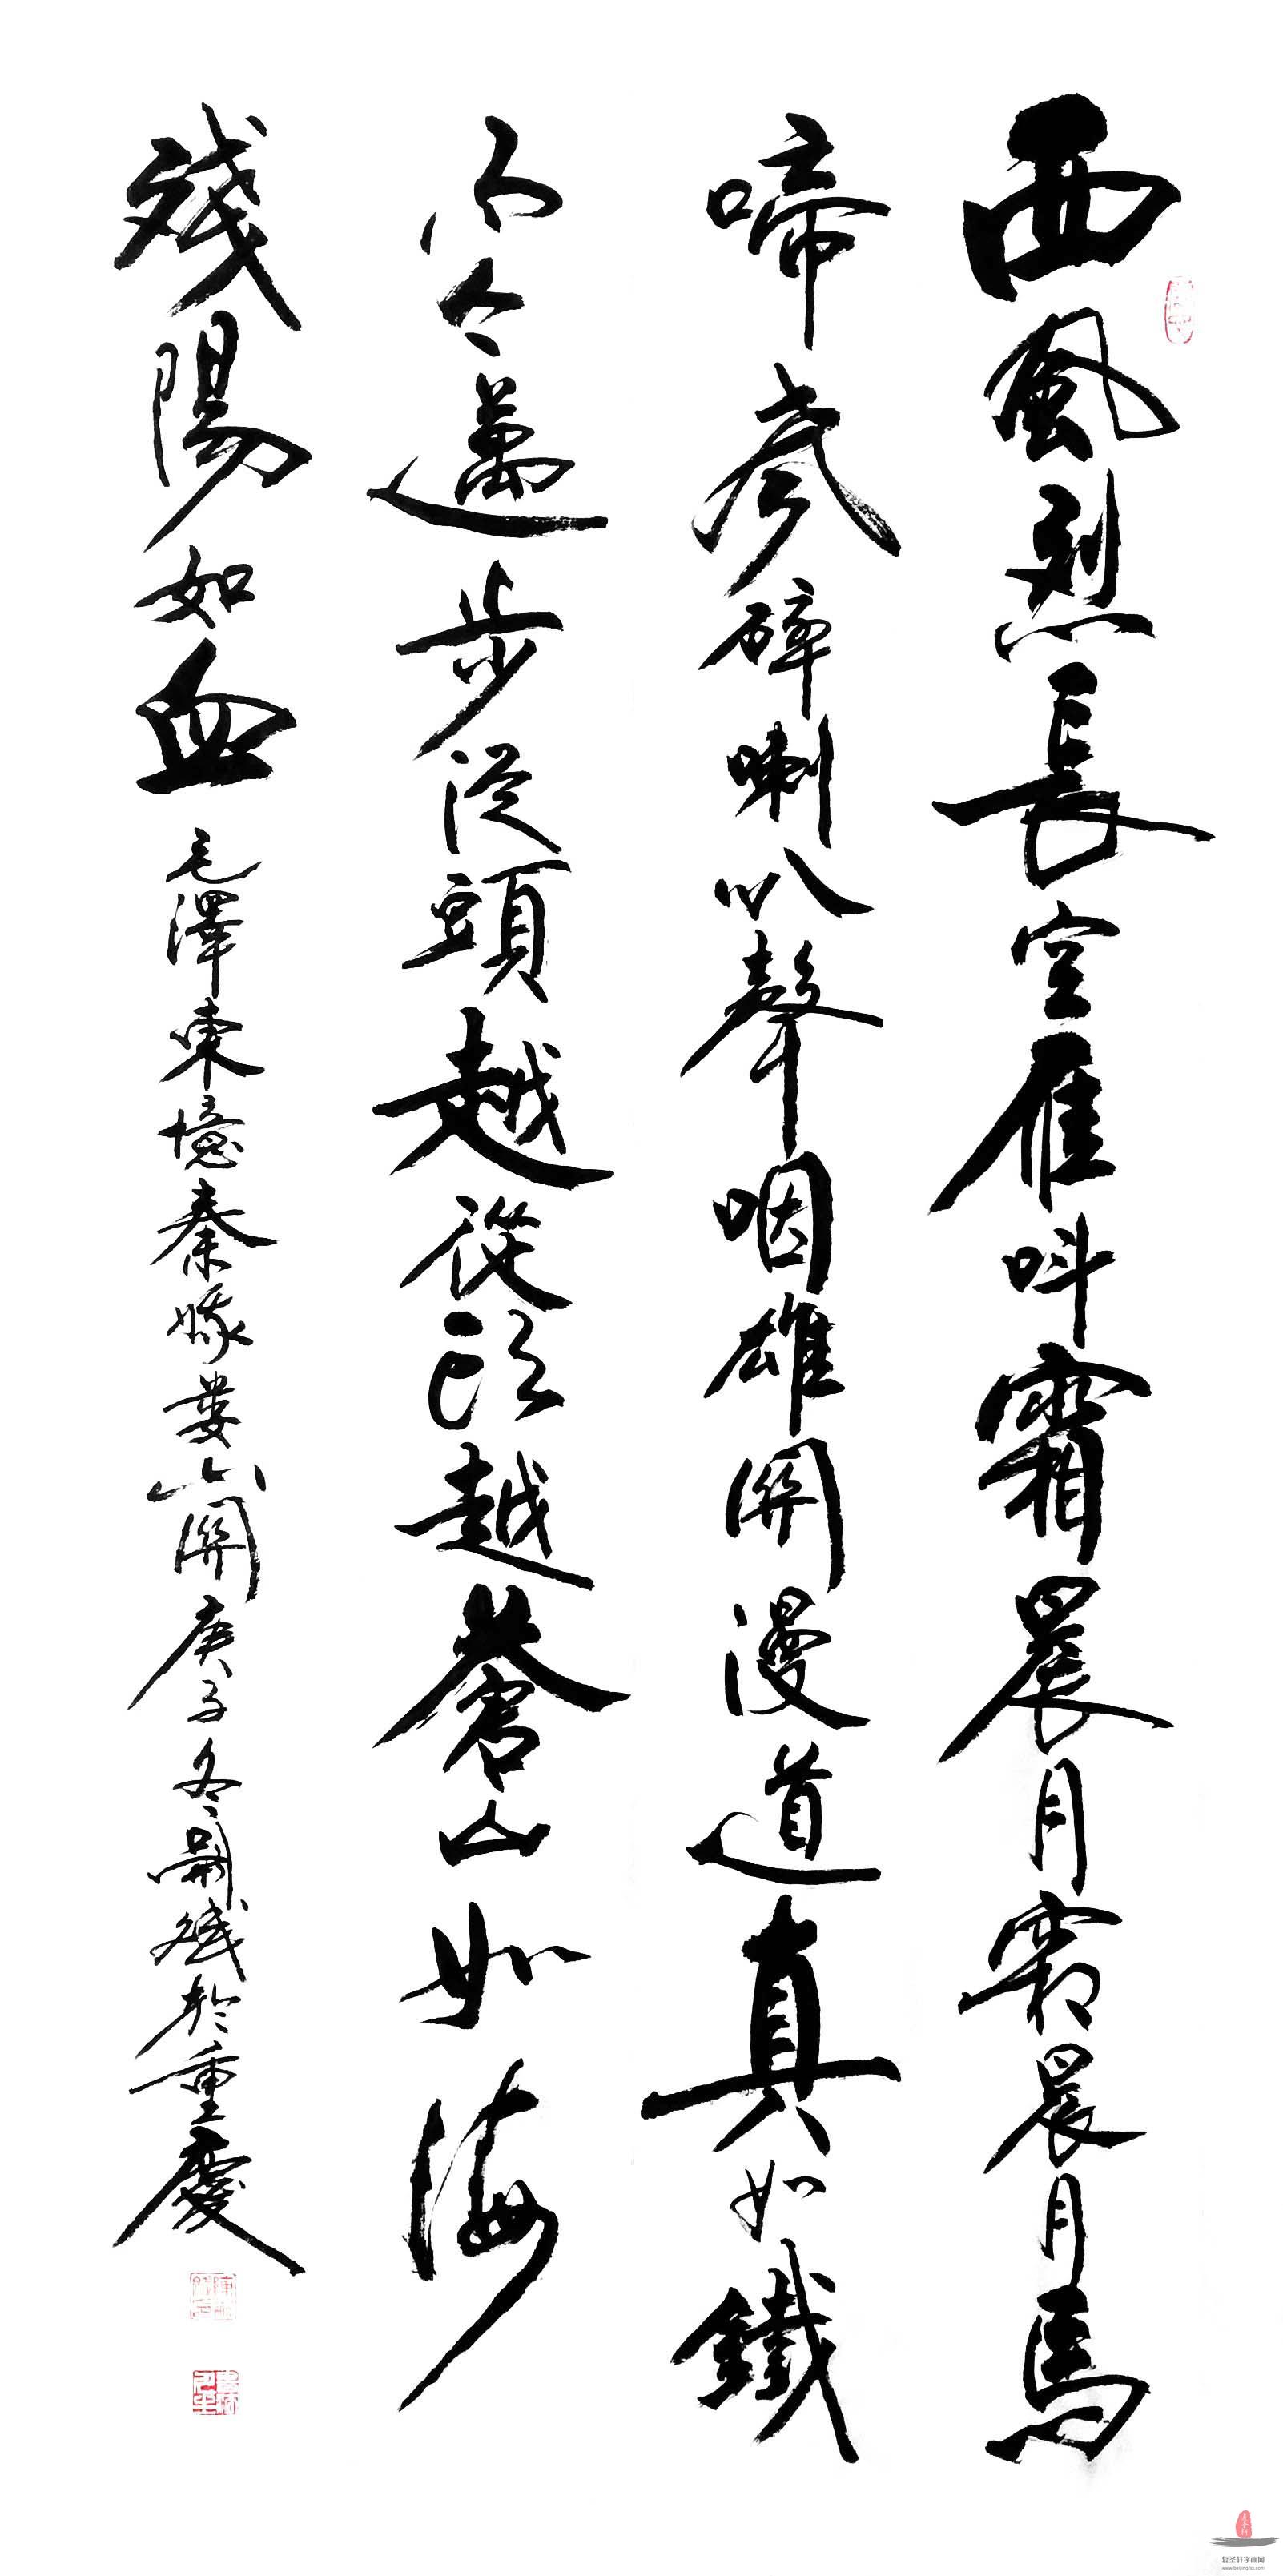 西風烈長空雁叫霜晨月霜晨月馬
啼聲碎喇叭聲咽雄關漫道真如鐵
而今邁步從頭越從頭越蒼山如海
殘陽如血 毛澤東憶秦娥婁山關庚子冬嗣斌於重慶
复圣轩字画网